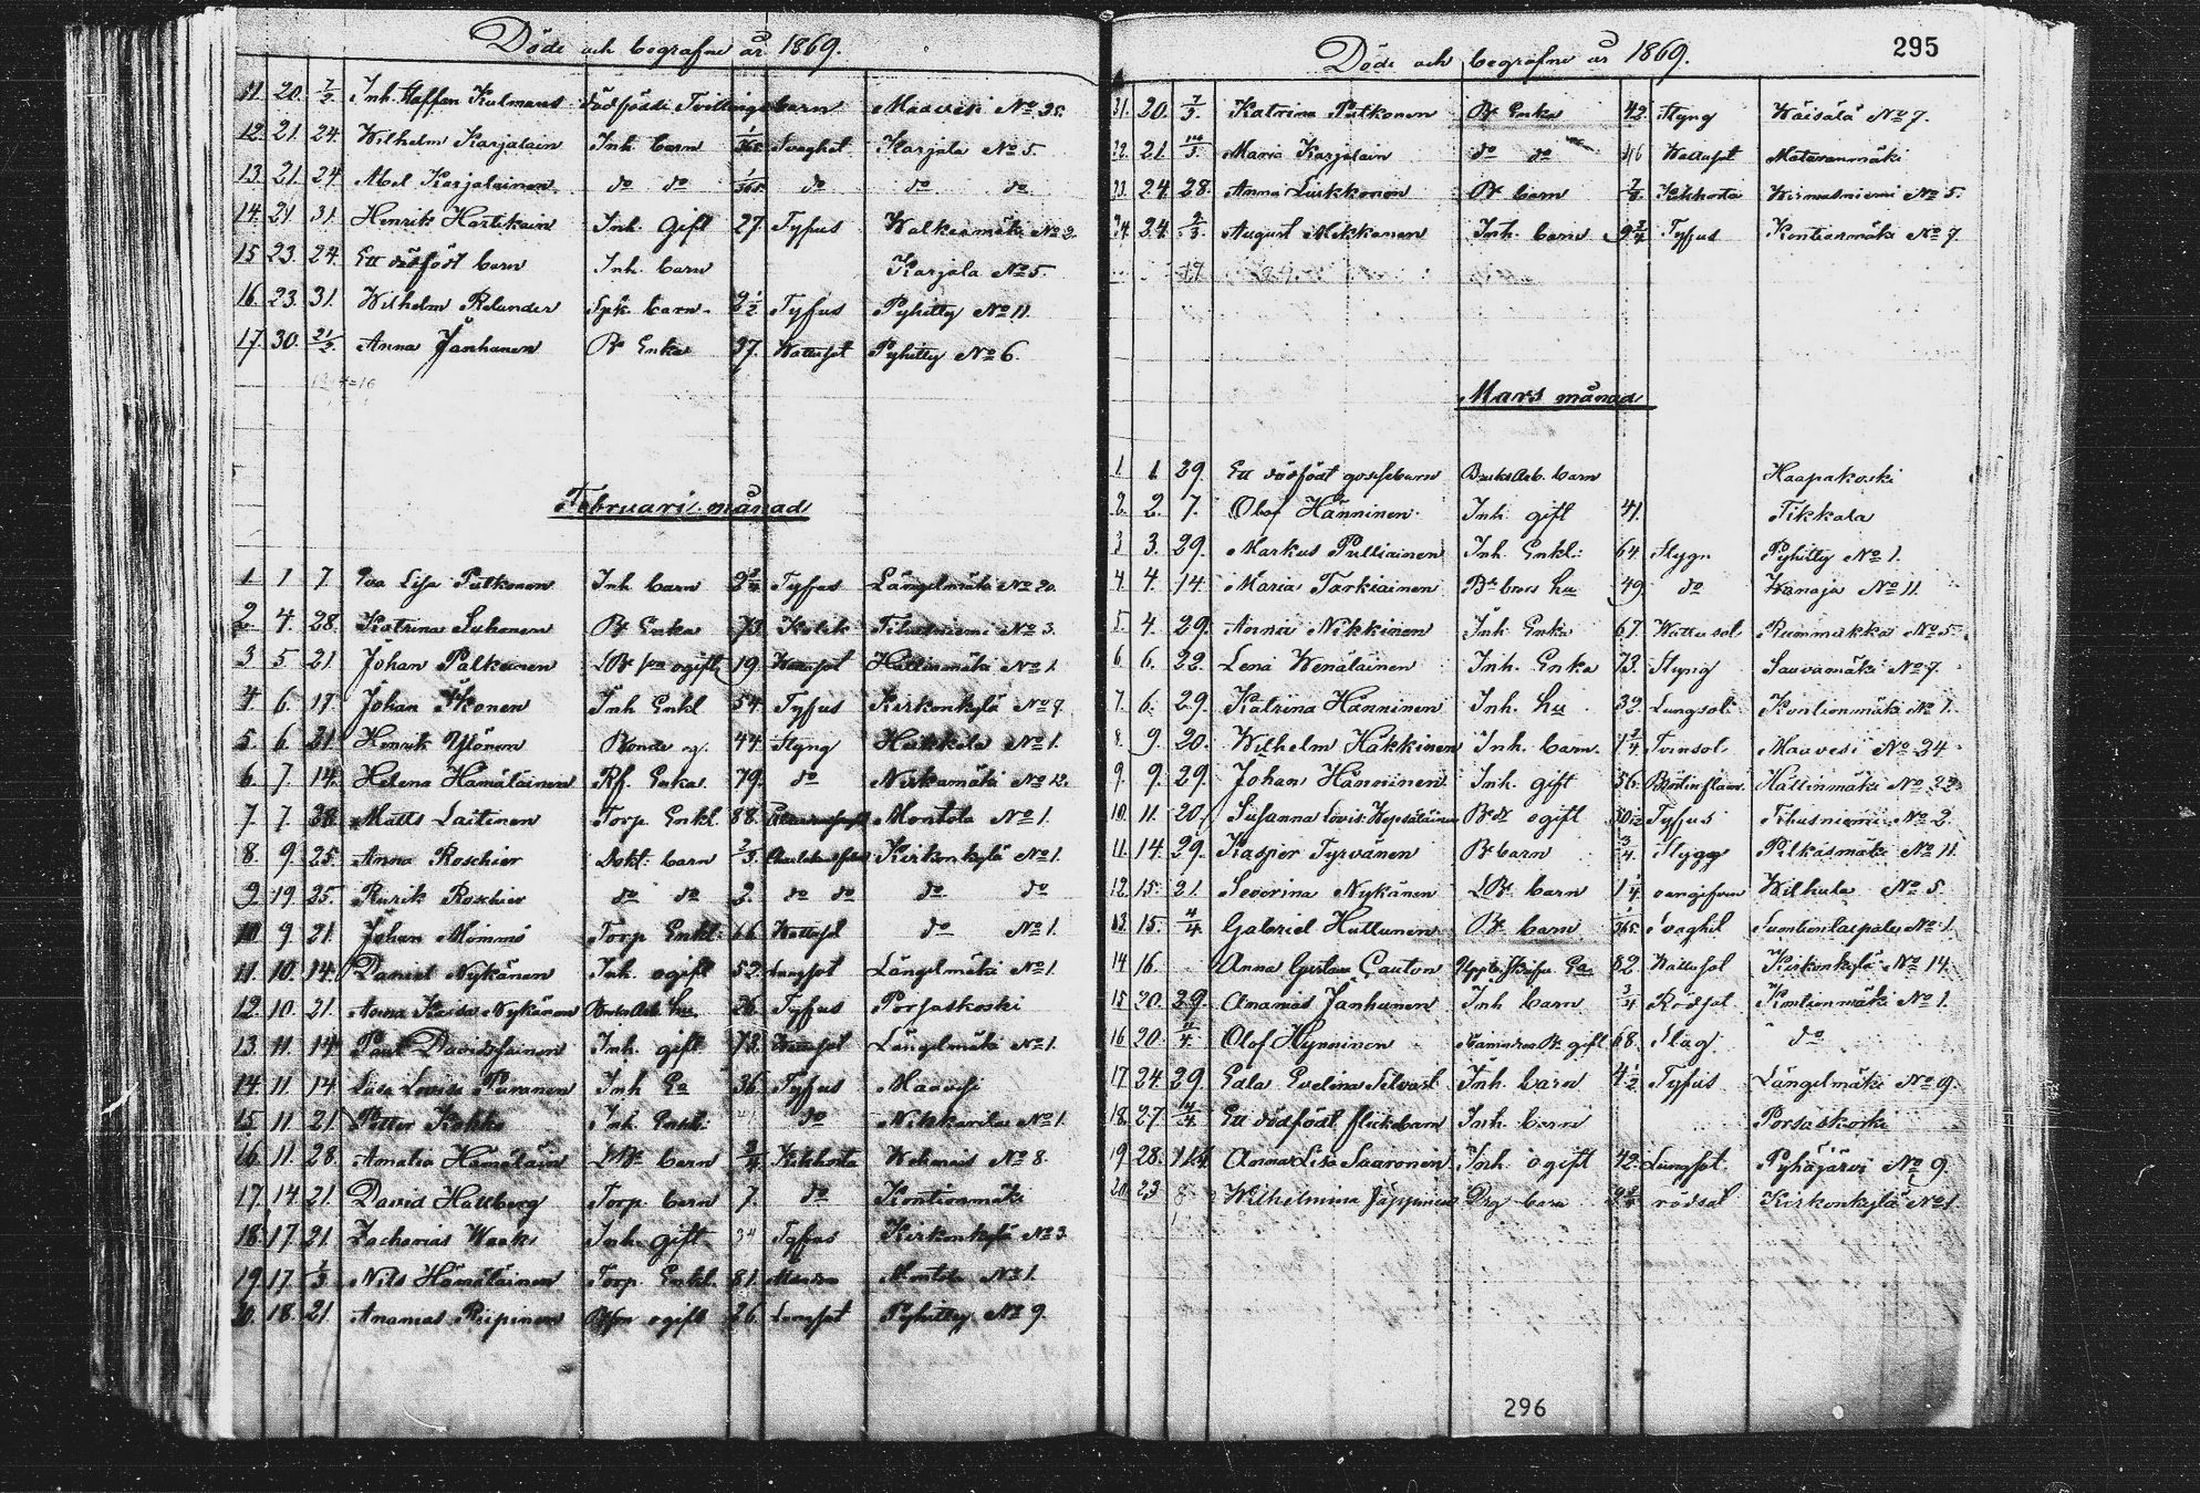 Döde och begrafne år 1869.
11. 20. 7/2. Inh. Staffan Kulmans dödfödde Tvillingebarn Maavesi No 35.
12. 21. 24. Wilhelm Karjalain Inh. barn 1/365 Svaghet Karjala No 5.
13. 21. 24 Abel Karjalainen do do 1/365 do do do
14. 21 31. Henrik Hartikain Inh. Gift 27. Tyfus Walkeamäki No 2.
15 23. 24. Ett dödfödt barn Inh. barn Karjala No 5.
16. 23. 31. Wilhelm Relander barn 2 1/2 Tyfus Pyhitty No 11.
17. 30. 21/2. Anna Janhunen Bd Enka 37. Wattusot Pyhitty No 6.
Februari månad
1 1 7 Eva Lisa Putkonen Inh barn Tyfus Längelmäki No 20.
2. 4. 28. Katrina Suhonen Bd Enka 73. Kolik Tihusniemi No 3.
3 5 21 Johan Palkeinen LBd son ogift 19. Wattusot Hällinmäki No 1.
4. 6. 17 Johan Ikonen Inh Enkl 54. Tyfus Kirkonkylä No 7.
5. 6. 21 Henrik Ylönen Bonde g. 44. Styng Häkkilä No 1.
6. 7. 14. Helena Hämäläinen Enka. 79. do Niskamäki No 12.
7. 7. 28. Matts Laitinen Torp. Enkl. 88. Montola No 1.
8. 9. 25. Anna Roschier Dokt. barn 2/3. Kirkonkylä No 1.
9 19 25. Rurik Roschier do do 2. do do do do
10 9. 21. Johan Mömmö Torp Enkl: 66 Wattusot do No 1.
11. 10. 14. Daniel Nykänen Inh. ogift 52. Lungsot Längelmäki No 1.
12. 10. 21. Anna Kaisa Nykänen Hu 26. Tyfus Porsaskoski
13. 11. 14. Paul Davidsainen Inh. gift 73. Wattusot Längelmäki No 1.
14. 11. 14 Lisa Lovisa Puranen Inh Ea 36. Tyfus Maavesi
15 11 21 Petter Kokko Inh. Enkl: do Nikkarila No 1.
16. 11. 28. Amalia Hämäläin LBd barn 3/4 Kikhosta No 8.
17. 14 21. David Hallberg Torp. barn 7. do Kontionmäki
18. 17 21 Zacharias Inh. gift Tyfus Kirkonkylä No 3.
19. 17 1/3 Nils Hämäläinen Torp. Enkl. 81. Montola No 1.
20. 18. 21 Ananias Riipinen ogift 26. Lungsot Pyhitty No 9.
Döde och begrafne år 1869. 295
21. 20. 7/3. Katrina Putkonen Bd Enka 42. Styng Wäisälä No 7.
22. 21 14/3. Maria Karjalain do do Wattusot Metsänmäki
23. 24. 28. Anna Luikkonen Bd barn Kikhosta No 5.
24. 24. 2/3. August Mikkonen Inh. barn Tyfus Kontionmäki No 7
Mars månad
1. 1 29. Ett dödfödt gossebarn BruksArb. barn Haapakoski
2. 2. 7. Olof Hänninen Inh. gift 41. Tikkala
3 3. 29. Markus Pulliainen Inh. Enkl: 64. Stygn Pyhitty No 1.
4. 4. 14. Maria Tarkiainen Bd brors Hu 49. do Wanaja No 11.
5. 4. 29. Anna Nikkinen Inh Enka 67. Wattusot Rummukka No 5.
6. 6. 22. Lena Wenäläinen Inh. Enka 73. Styng Sauvamäki No 7.
7. 6. 29. Katrina Hänninen Inh. Hu 32. Lungsot Kontionmäki No 1.
8. 9. 20. Wilhelm Hakkinen Inh. barn. 1 3/4 Tvinsot. Maavesi No 24.
9. 9. 29. Johan Hänninen Inh. gift 56. Hällinmäki No 22
10. 11. 20. Susanna Lovis. Bd dr ogift Tyfus Tihusniemi No 2.
11. 14. 29. Kasper Tyrvänen Bd barn 3/4. Stygn Pitkäsmäki No 11.
12. 15. 21. Severina Nykänen LBd barn 1 1/4 oangifven Wilhula No 5.
13. 15. 4/4 Gabriel Huttunen Bd barn 365. Svaghet Suontientaipale No 1.
14 16. Anna Gustava Cauton 82 Wattusot Kirkonkylä No 14.
15 20. 29. Ananias Janhunen Inh barn 3/4 Rödsot Kontionmäki No 1.
16 20. 4/4. Olof Hynninen Bd gift 68. Slag. do
17 24. 29. Eala Evelina Silvast Inh. barn 4 1/2 Tyfus Längelmäki No 9.
18. 27 4/4. Ett dödfödt flickebarn Inh. barn Porsaskoski
19 28. 11/4 Anna Lisa Saaronen Inh. ogift 42. Lungsot. Pyhäjärvi No 9.
20. 23 Wilhelmina Jäppinen Drg barn rödsot Kirkonkylä No 1
296